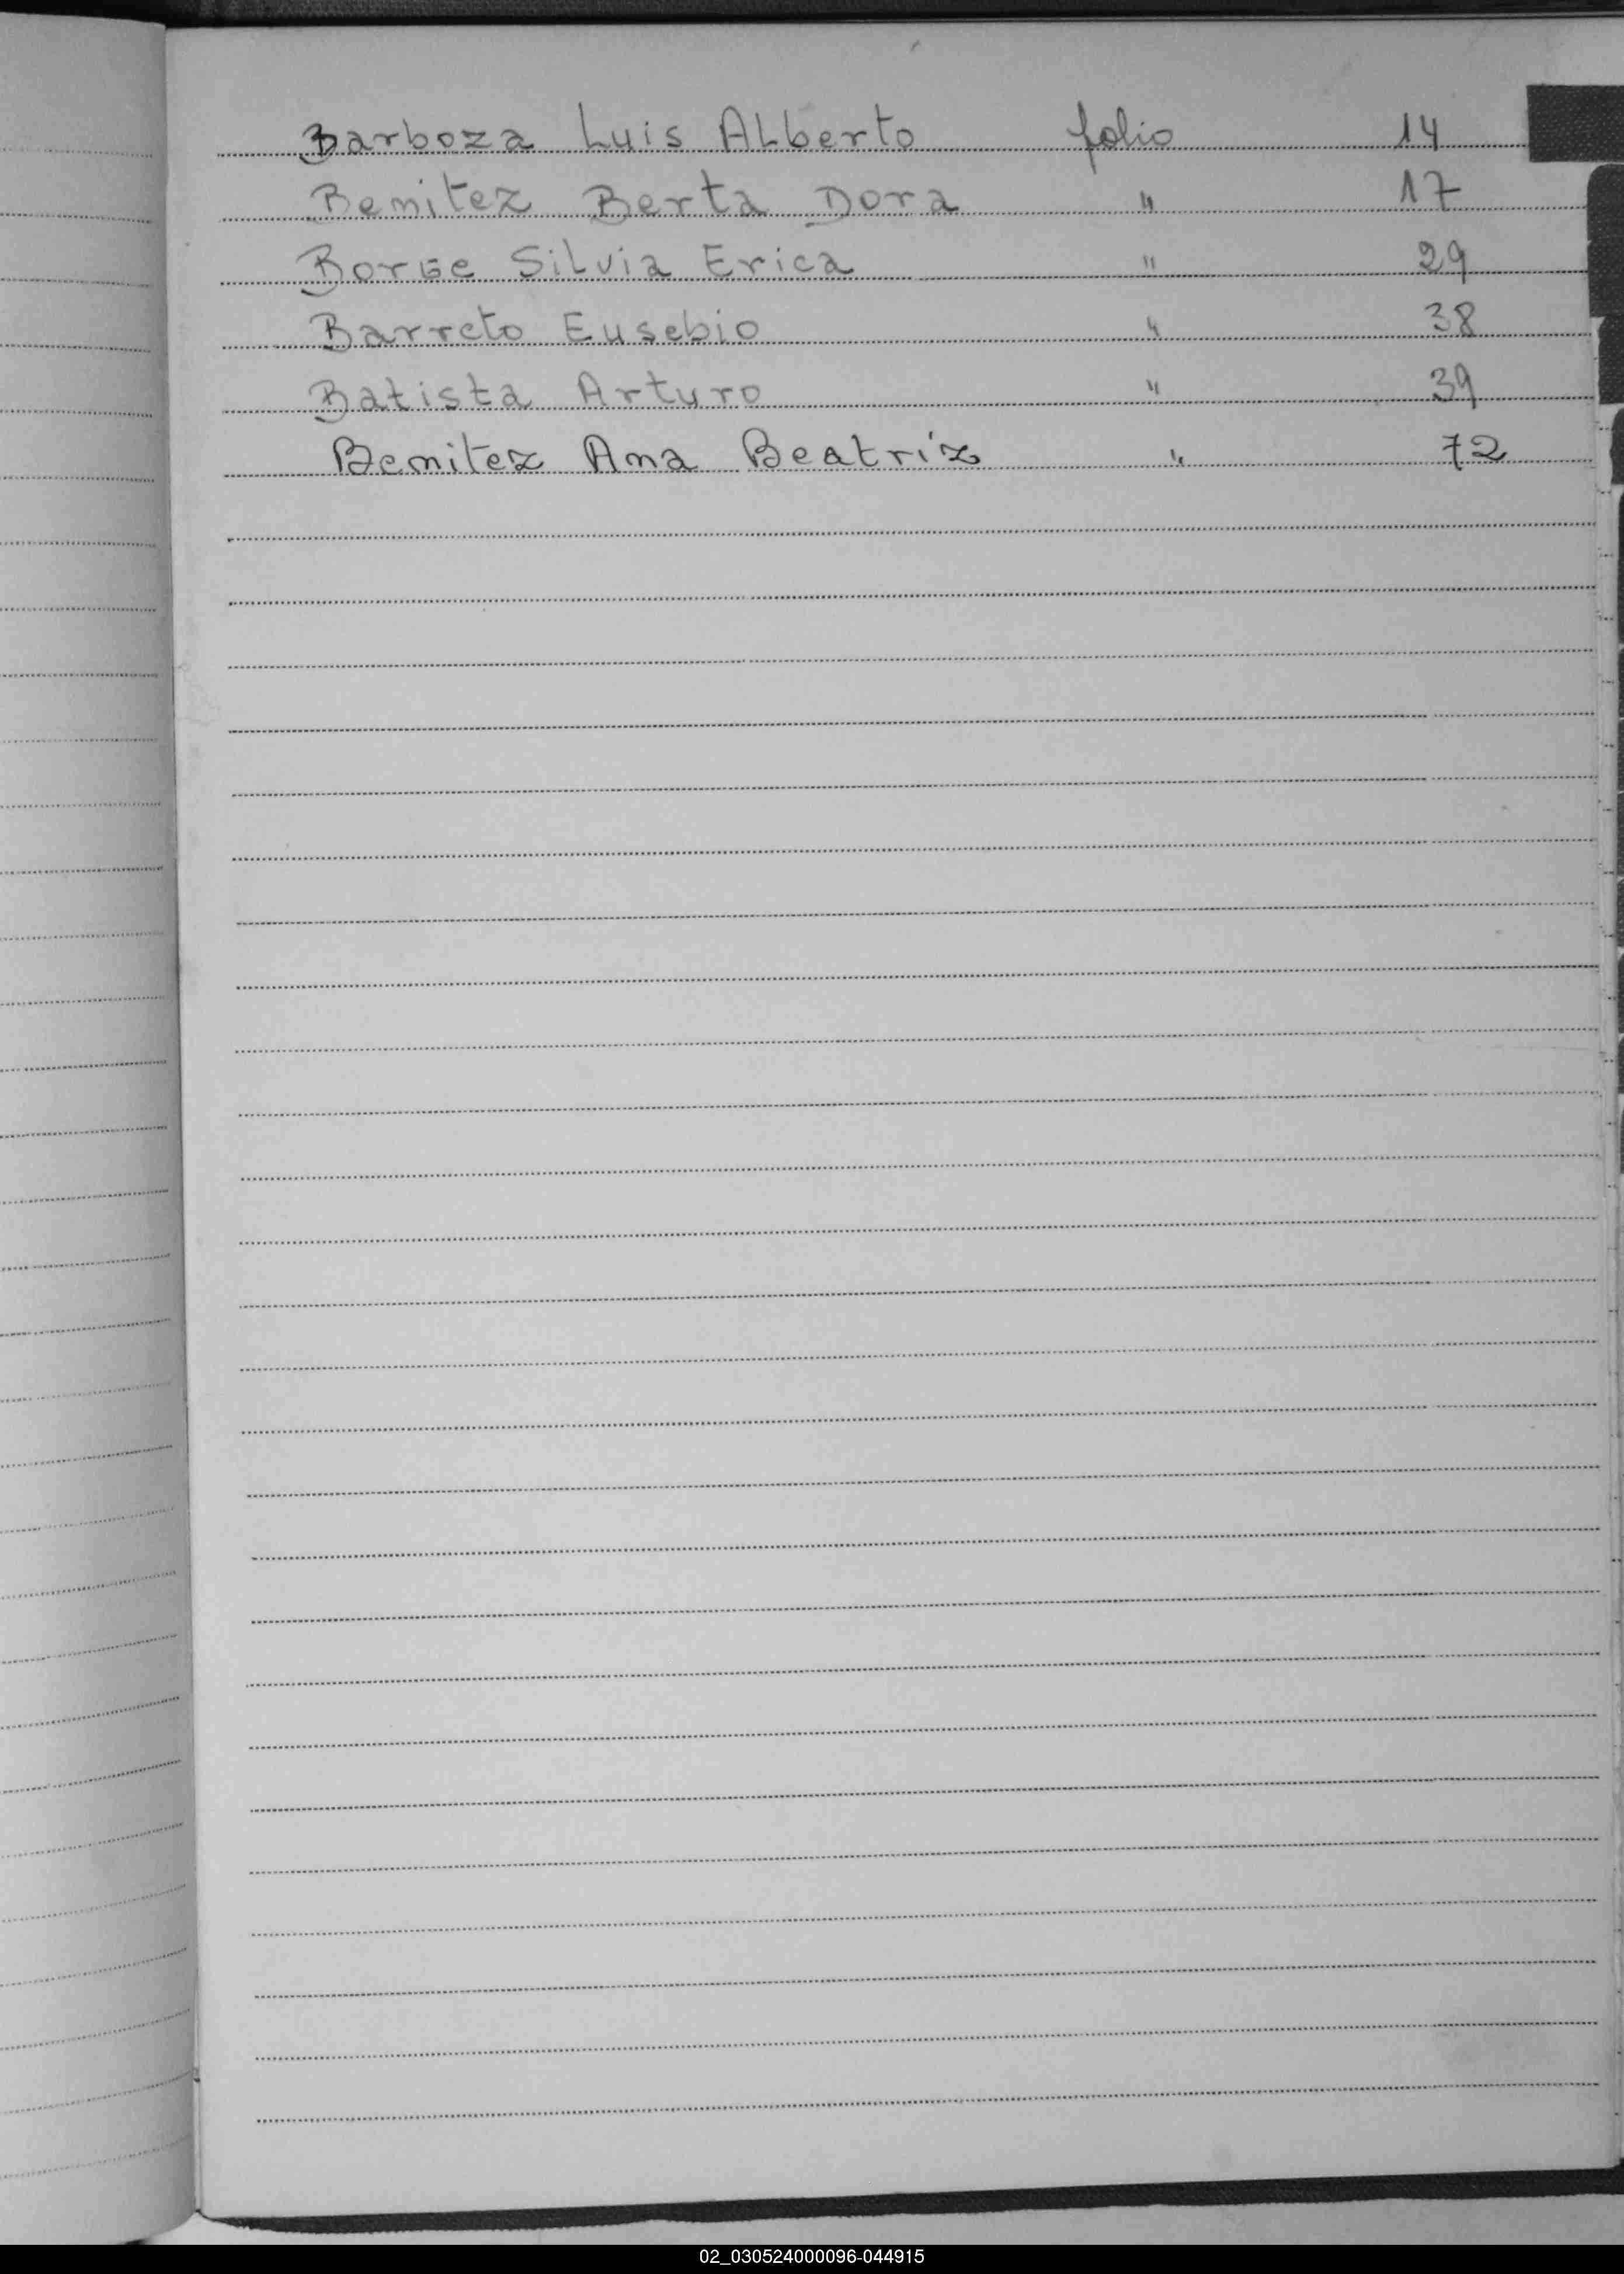 Barboza Luis ALberto folio 14
Benitez Berta Dora " 17
BorGe SiLvia Erica " 29
Barreto Eusebio " 38
Batista Arturo " 39
Benitez Ana Beatriz " 72
02_030524000096-044915